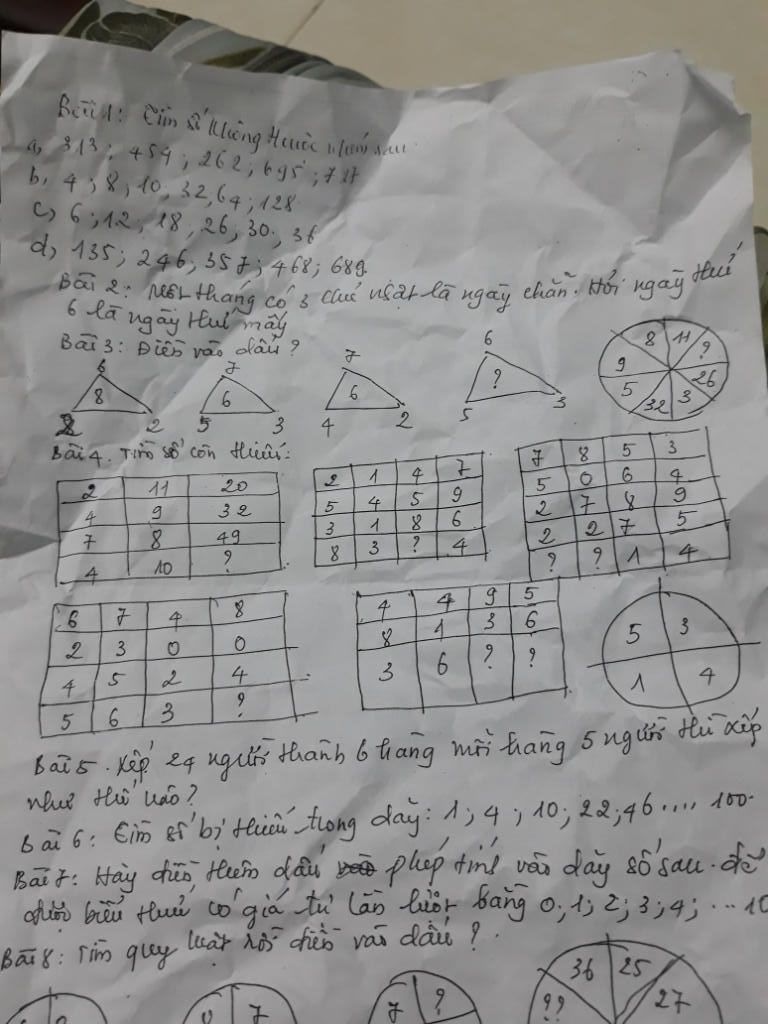 Bài 1: Tìm số không thuộc nhóm sau
a, 313; 454; 262; 695; 727
b, 4; 8; 10, 32, 64; 128
c, 6; 12; 18, 26; 30; 36
d, 135; 246; 357; 468; 689
Bài 2: Một tháng có 3 chủ nhật là ngày chẵn. Hỏi ngày thứ
6 là ngày thứ mấy
Bài 3: Điền vào dấu ?
6 7 7 6
8 6 6 ?
2 5 3 4 2 5 3
8 11 ? 26 3 32 5 9
Bài 4. Tìm số còn thiếu:
2 11 20
4 9 32
7 8 49
4 10 ?
2 1 4 7
5 4 5 9
3 1 8 6
8 3 ? 4
7 8 5 3
5 0 6 4
2 7 8 9
2 2 7 5
? ? 1 4
6 7 4 8
2 3 0 0
4 5 2 4
5 6 3 ?
4 4 9 5
8 1 3 6
3 6 ? ?
5 3
1 4
Bài 5. Xếp 24 người thành 6 hàng mỗi hàng 5 người thì xếp
như thế nào?
Bài 6: Tìm số bị thiếu trong dãy: 1; 4; 10; 22; 46 .... 100.
Bài 7: Hãy điền thêm dấu phép tính vào dãy số sau để
được biểu thức có giá trị lần lượt bằng 0; 1; 2; 3; 4; ... 10
Bài 8: Tìm quy luật rồi điền vào dấu ?
7 7 ? 36 25
?? 27